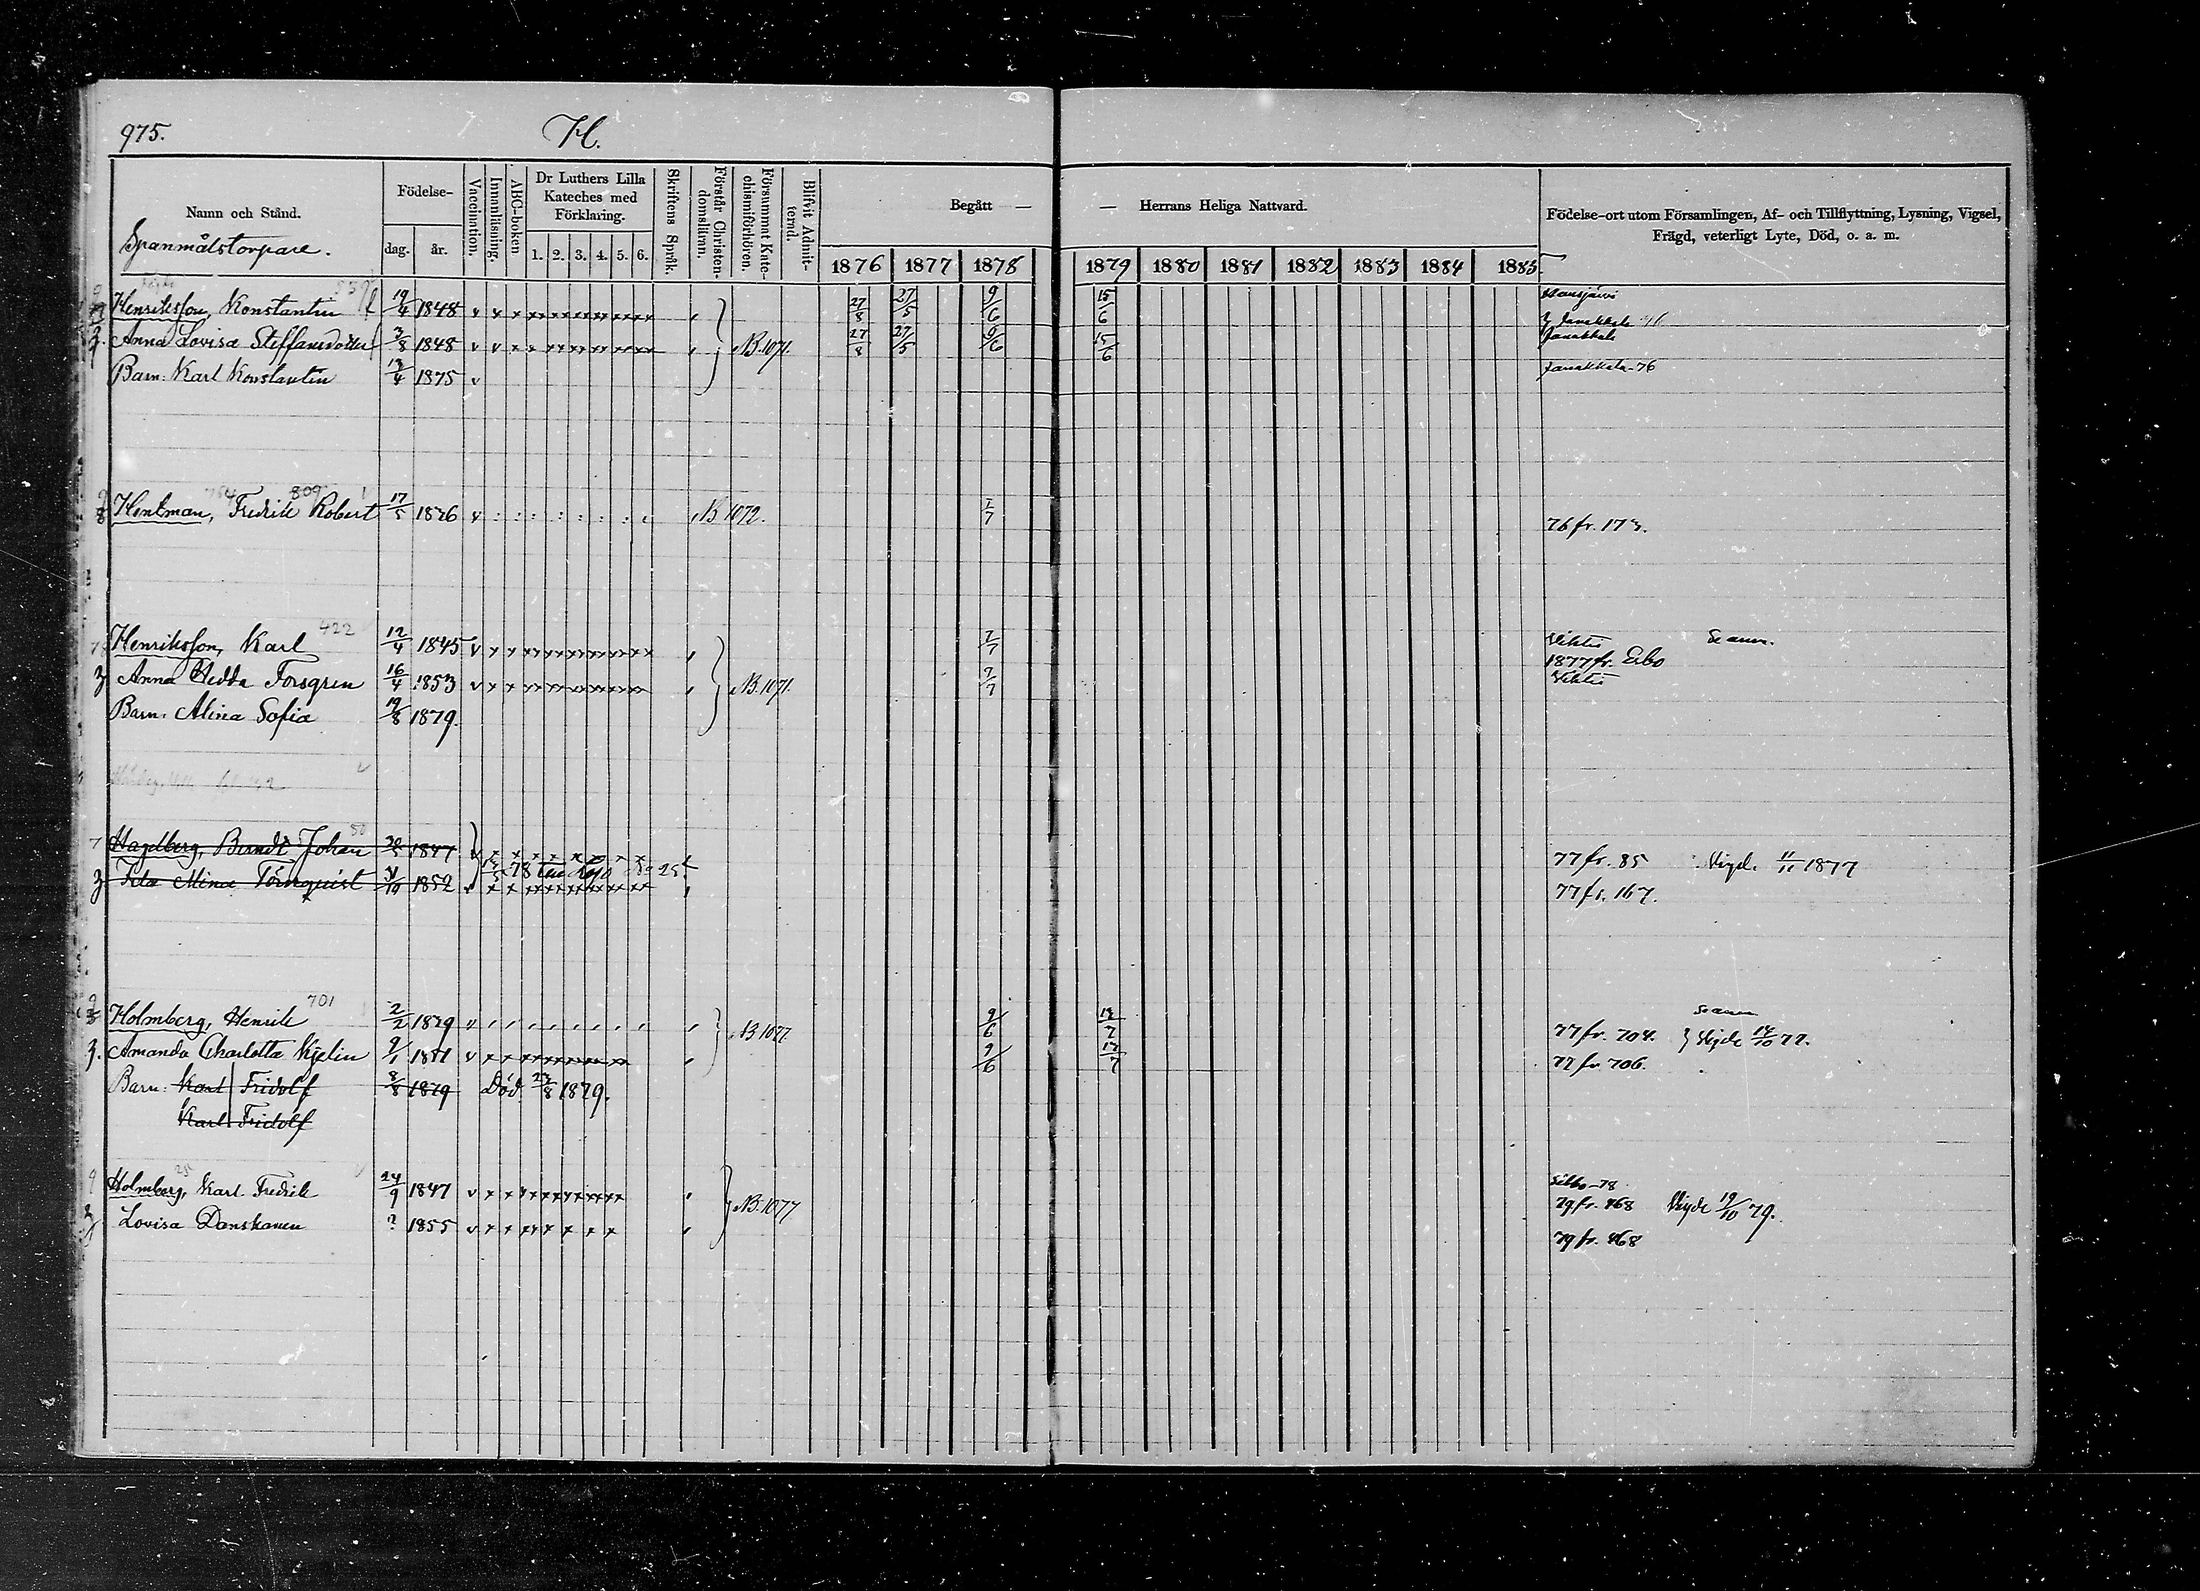 975.
H.
Namn och Stånd.
Födelse-
dag.
år.
Vaccination.
Innanläsning.
ABC-boken
Dr Luthers Lilla
Kateches med
Förklaring.
1. 2. 3. 4. 5. 6.
Skriftens Språk.
Förstår Christen-
domslämn.
Försummat Kate-
chismiförhören.
Blifvit Admit-
terad.
Begått —
— Herrans Heliga Nattvard.
1876 1877 1878 1879 1880 1881 1882 1883 1884 1885
Födelse-ort utom Församlingen, Af- och Tillflyttning, Lysning, Vigsel,
Frägd, veterligt Lyte, Död, o. a. m.
Spanmålstorpare.
Henriksson, Konstantin 19/4 1848 27/8 27/5 9/6 15/6 Hausjärvi
Anna Lovisa Steffansdotter 3/8 1848 N.B. 1071. 27/8 27/5 9/6 15/6 Janakkala
Barn: Karl Konstantin 13/4 1875 v Janakkala-76
809
Hentman, Fredrik Robert 17/5 1826 B 1072. 7/7 76 fr. 173.
422
Henriksson, Karl 12/4 1845 7/7 Vihtis
1877 fr. Esbo
Anna Hedda Forsgren 16/4 1853 N.B. 1071. 7/7 Vihtis
Barn. Alina Sofia 19/8 1879.
Hagelberg, Berndt Johan 1847 77 fr. 85 Vigd. 11/11 1877
78 Lojo No 25
Ida Mina Törnquist 1852 77 fr. 167.
701
Holmberg, Henrik 2/2 1829 N.B 1077. 9/6 77 fr. 704. Vigde 14/10 77.
Amanda Charlotta Kjelin 9/1 9/6 77 fr 706.
Barn: Karl Fridolf 8/8 1879 Död 23/8 1879.
Karl Fridolf
Holmberg, Karl Fredrik 24/9 1847 N.B. 1077 Sibbo-78
79 fr. 868 Vigde 19/10 79.
Lovisa Danskanen ? 1855 79 fr. 868